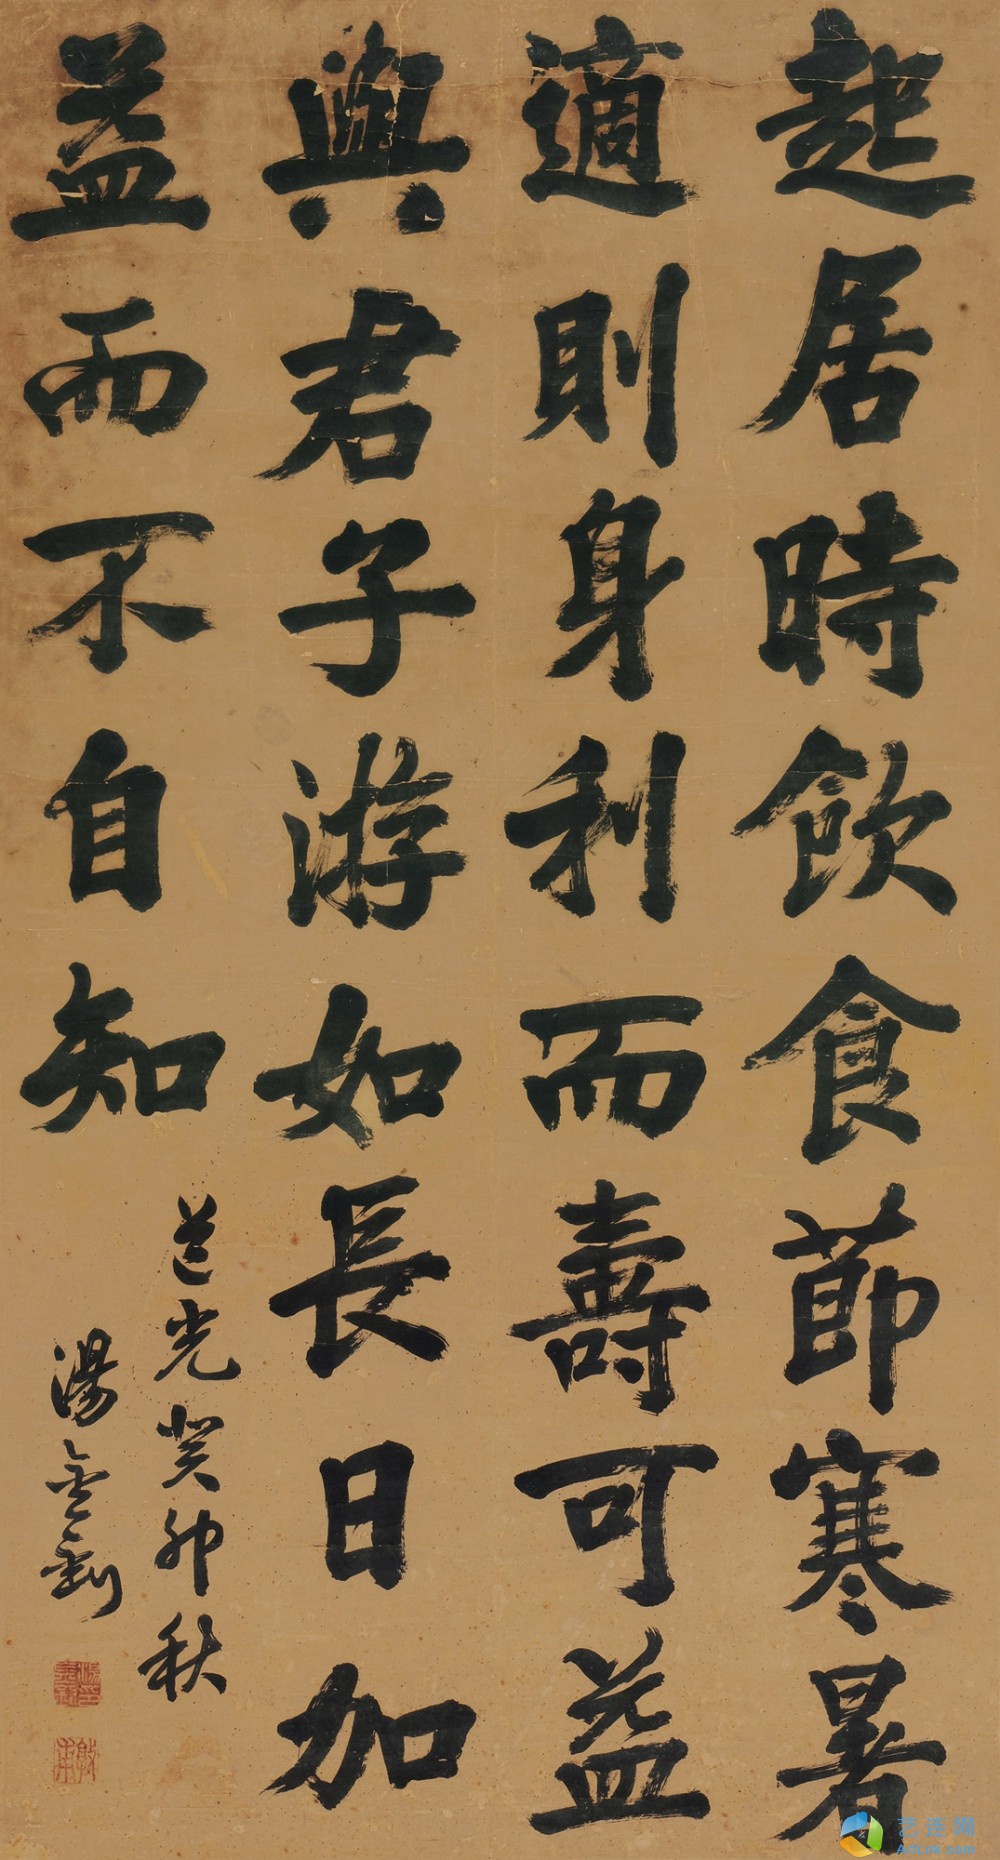 起居時飲食節寒暑
適則身利而壽可益
與君子游如長日加
益而不自知
道光癸卯秋
湯金釗
艺连网